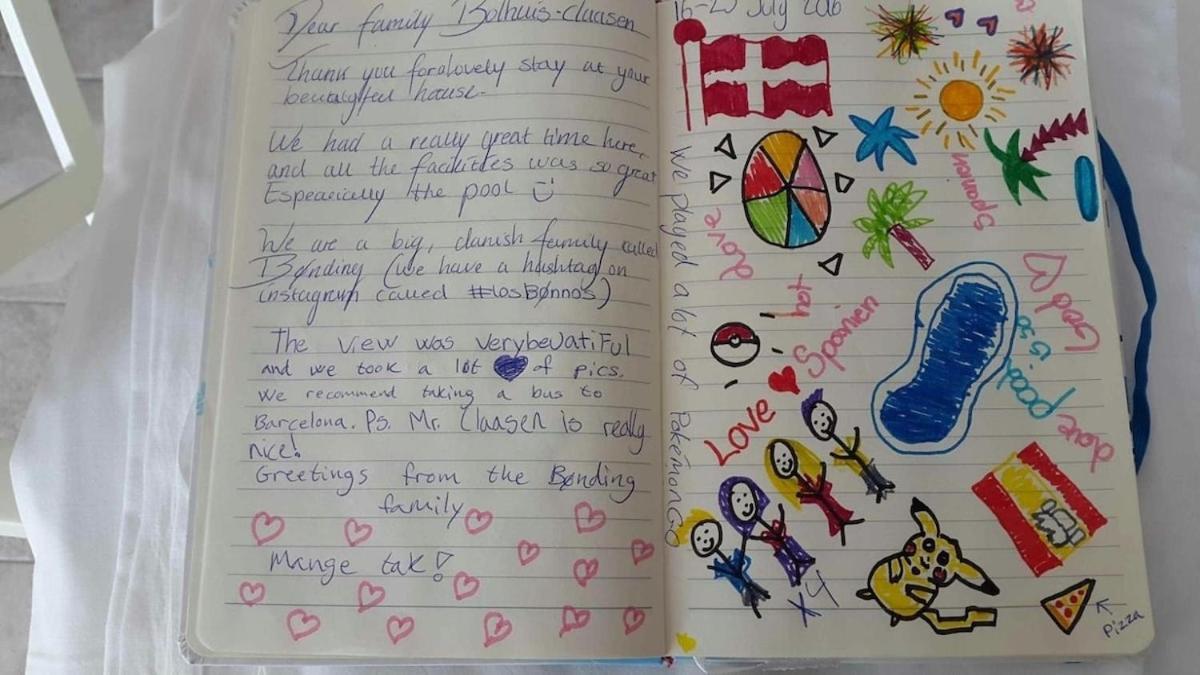 Dear family Bolhuis-Claasen
Thank you for a lovely stay at your
beutalyfed house.
We had a really great time here,
and all the facilities was so great
Especiically the pool
We are a big, danish family called
Bønding (we have a hashtag on
instagram called #losBønnos)
The view was very beuatiful
and we took a lot of pics.
We recommend taking a bus to
Barcelona. Ps. Mr. Claasen is really
nice!
Greetings from the Bønding
family
Mange tak!
July 2016
We played a lot of Pokémon Go
Love
Spanien
hot
Spanien
Love
God
Love pool is
x4
Pizza